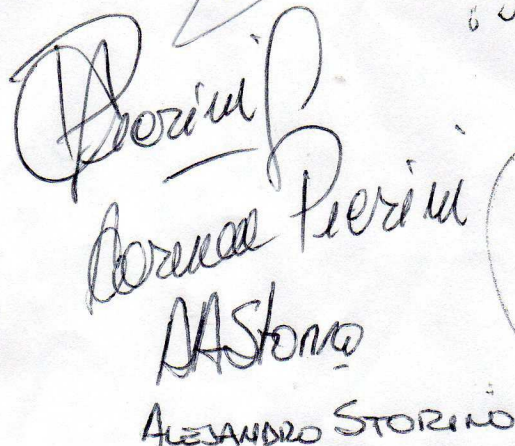 Pierini
Lorena Pierini
AAStorino
ALEJANDRO STORINO